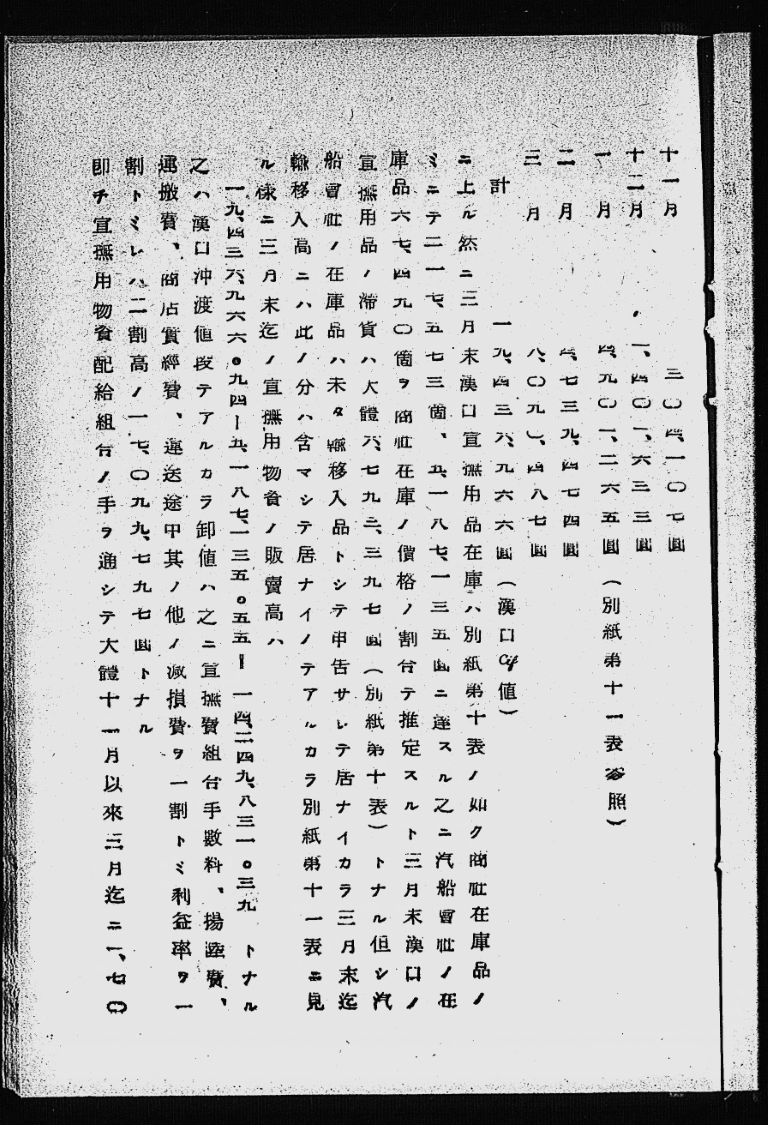 十一月　三〇四、一〇七圓
十二月　一、四〇一、六三三圓
一月　四、九〇一、二六五圓（別紙第十一表參照）
二月　四、七三九、四七四圓
三月　八、〇九〇、四八七圓
計　一九、四三六、九六六圓（漢口cif値）
ニ上ル然ニ三月末漢口宣撫用品在庫ハ別紙第十表ノ如ク商社在庫品ノ
ミニテ二一七、五七三箇、五、一八七、一三五圓ニ達スル之ニ汽船會社ノ在
庫品六七、四九〇箇ヲ商社在庫ノ價格ノ割合テ推定スルト三月末漢口ノ
宣撫用品ノ滯貨ハ大體六、七九三、三九七圓（別紙第十表）トナル但シ汽
船會社ノ在庫品ハ未タ輸移入品トシテ申告サレテ居ナイカラ三月末迄
輸移入高ニハ此ノ分ハ含マシテ居ナイノテアルカラ別紙第十一表ニ見
ル樣ニ三月末迄ノ宣撫用物資ノ販賣高ハ
一九、四三六、九六六。九四ー五、一八七、一三五。五五＝一四、二四九、八三一。三九　トナル
之ハ漢口沖渡値段テアルカラ卸値ハ之ニ宣撫費組合手數料、揚陸費、
運搬費、商店實經費、運送途中其ノ他ノ減損費ヲ一割トミ利益率ヲ一
割トミレハ二割高ノ一七、〇九九、七九七圓トナル
卽チ宣撫用物資配給組合ノ手ヲ通シテ大體十一月以來三月迄ニ一、七〇